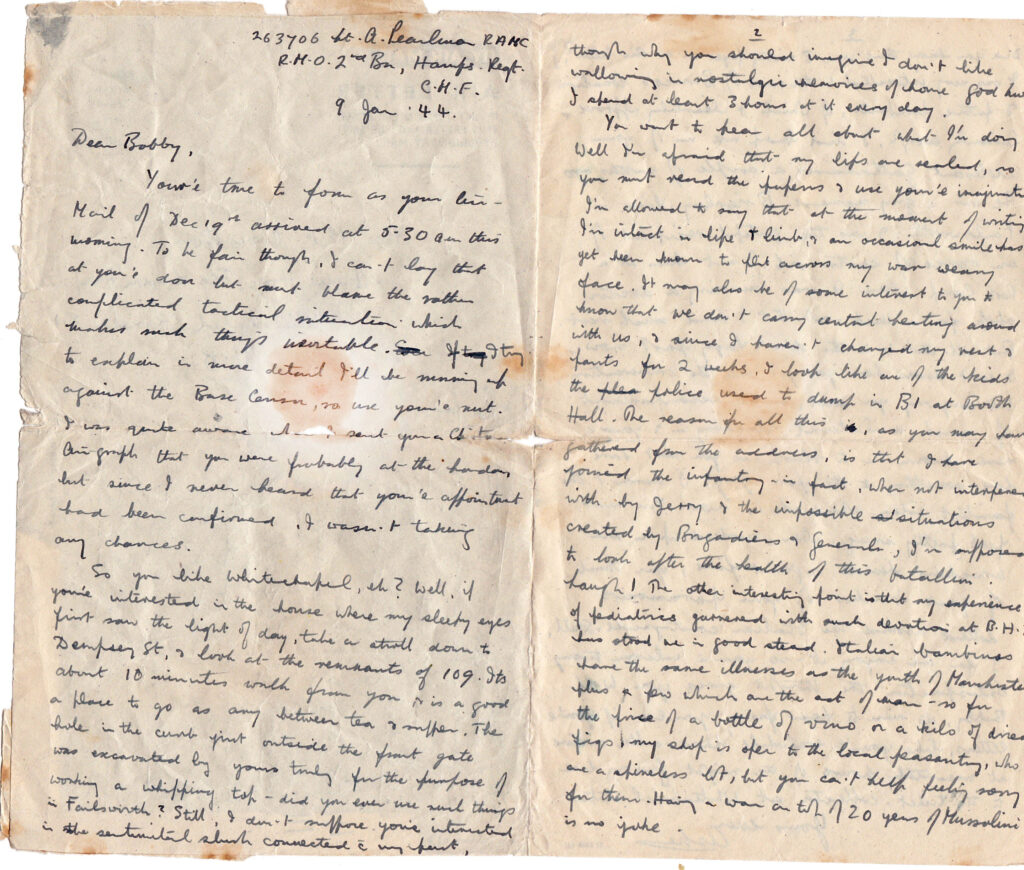 263706 Lt. A. Pearlman RAMC
R.M.O. 2nd Bn, Hamps. Regt.
C.M.F.
9 Jan. 44.
Dear Bobby,
Your'e true to form as your Air-
Mail of Dec 19th arrived at 5.30 am this
morning. To be fair though, I can't lay that
at your'e door but must blame the rather
complicated tactical situation which
makes such things inevitable. If I try
to explain in more detail I'll be running up
against the Base Censor, so use your'e nut.
I was quite aware when I sent you a
Airgraph that you were probably at the London,
but since I never heard that your'e appointment
had been confirmed, I wasn't taking
any chances.
So you like Whitechapel, eh? Well, if
you're interested in the house where my sleepy eyes
first saw the light of day, take a stroll down to
Dempsey St, & look at the remnants of 109. Its
about 10 minutes walk from you & is a good
a place to go as any between tea & supper. The
hole in the curb just outside the front gate
was excavated by yours truly for the purpose of
working a whipping top - did you ever use such things
in Failsworth? Still, I don't suppose you're interested
in the sentimental slush connected c my past,
2
though why you should imagine I don't like
wallowing in nostalgic memories of home God
I spend at least 3 hours at it every day.
You want to hear all about what I'm doing
Well I'm afraid that my lips are sealed, so
you must read the papers & use your'e
I'm allowed to say that at the moment of writing
I'm intact in life & limb, & an occasional smile has
yet been known to flit across my war weary
face. It may also be of some interest to you to
know that we don't carry central heating around
with us, & since I haven't changed my vest &
pants for 2 weeks, I look like one of the kids
the police used to dump in B1 at Booth
Hall. The reason for all this is, as you may have
gathered from the address, is that I have
joined the infantry - in fact, when not
with by Jerry & the impossible situations
created by Brigadiers & Generals, I'm supposed
to look after the health of this batallion.
haugh! The other interesting point is that my experience
of pediatrics garnered with such devotion at B.H.
has stood me in good stead. Italian bambinos
have the same illnesses as the youth of Manchester
plus a few which are the act of man - so for
the price of a bottle of vino or a kilo of dried
figs, my shop is open to the local peasantry, who
are a spineless lot, but you can't help feeling sorry
for them. Having a war on top of 20 years of Mussolini
is no joke.